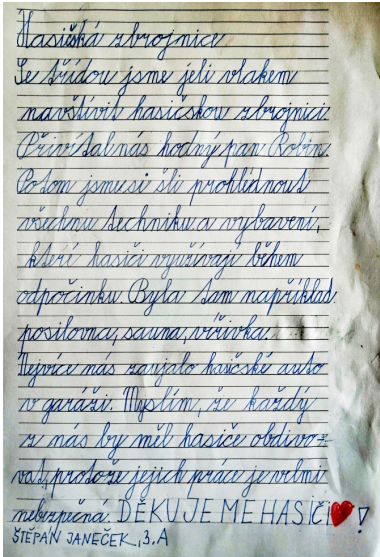 Hasičská zbrojnice
Se třídou jsme jeli vlakem
navštívit hasičskou zbrojnici.
Přivítal nás hodný pan Robin.
Potom jsme si šli prohlédnout
všechnu techniku a vybavení,
kteří hasiči využívají během
odpočinku. Byla tam například
posilovna, sauna, vířivka.
Nejvíce nás zaujalo hasičské auto
v garáži. Myslím, že každý
z nás by měl hasiče obdivo-
vat, protože jejich práce je velmi
nebezpečná. DĚKUJEME HASIČI❤!
ŠTĚPÁN JANEČEK, 3.A